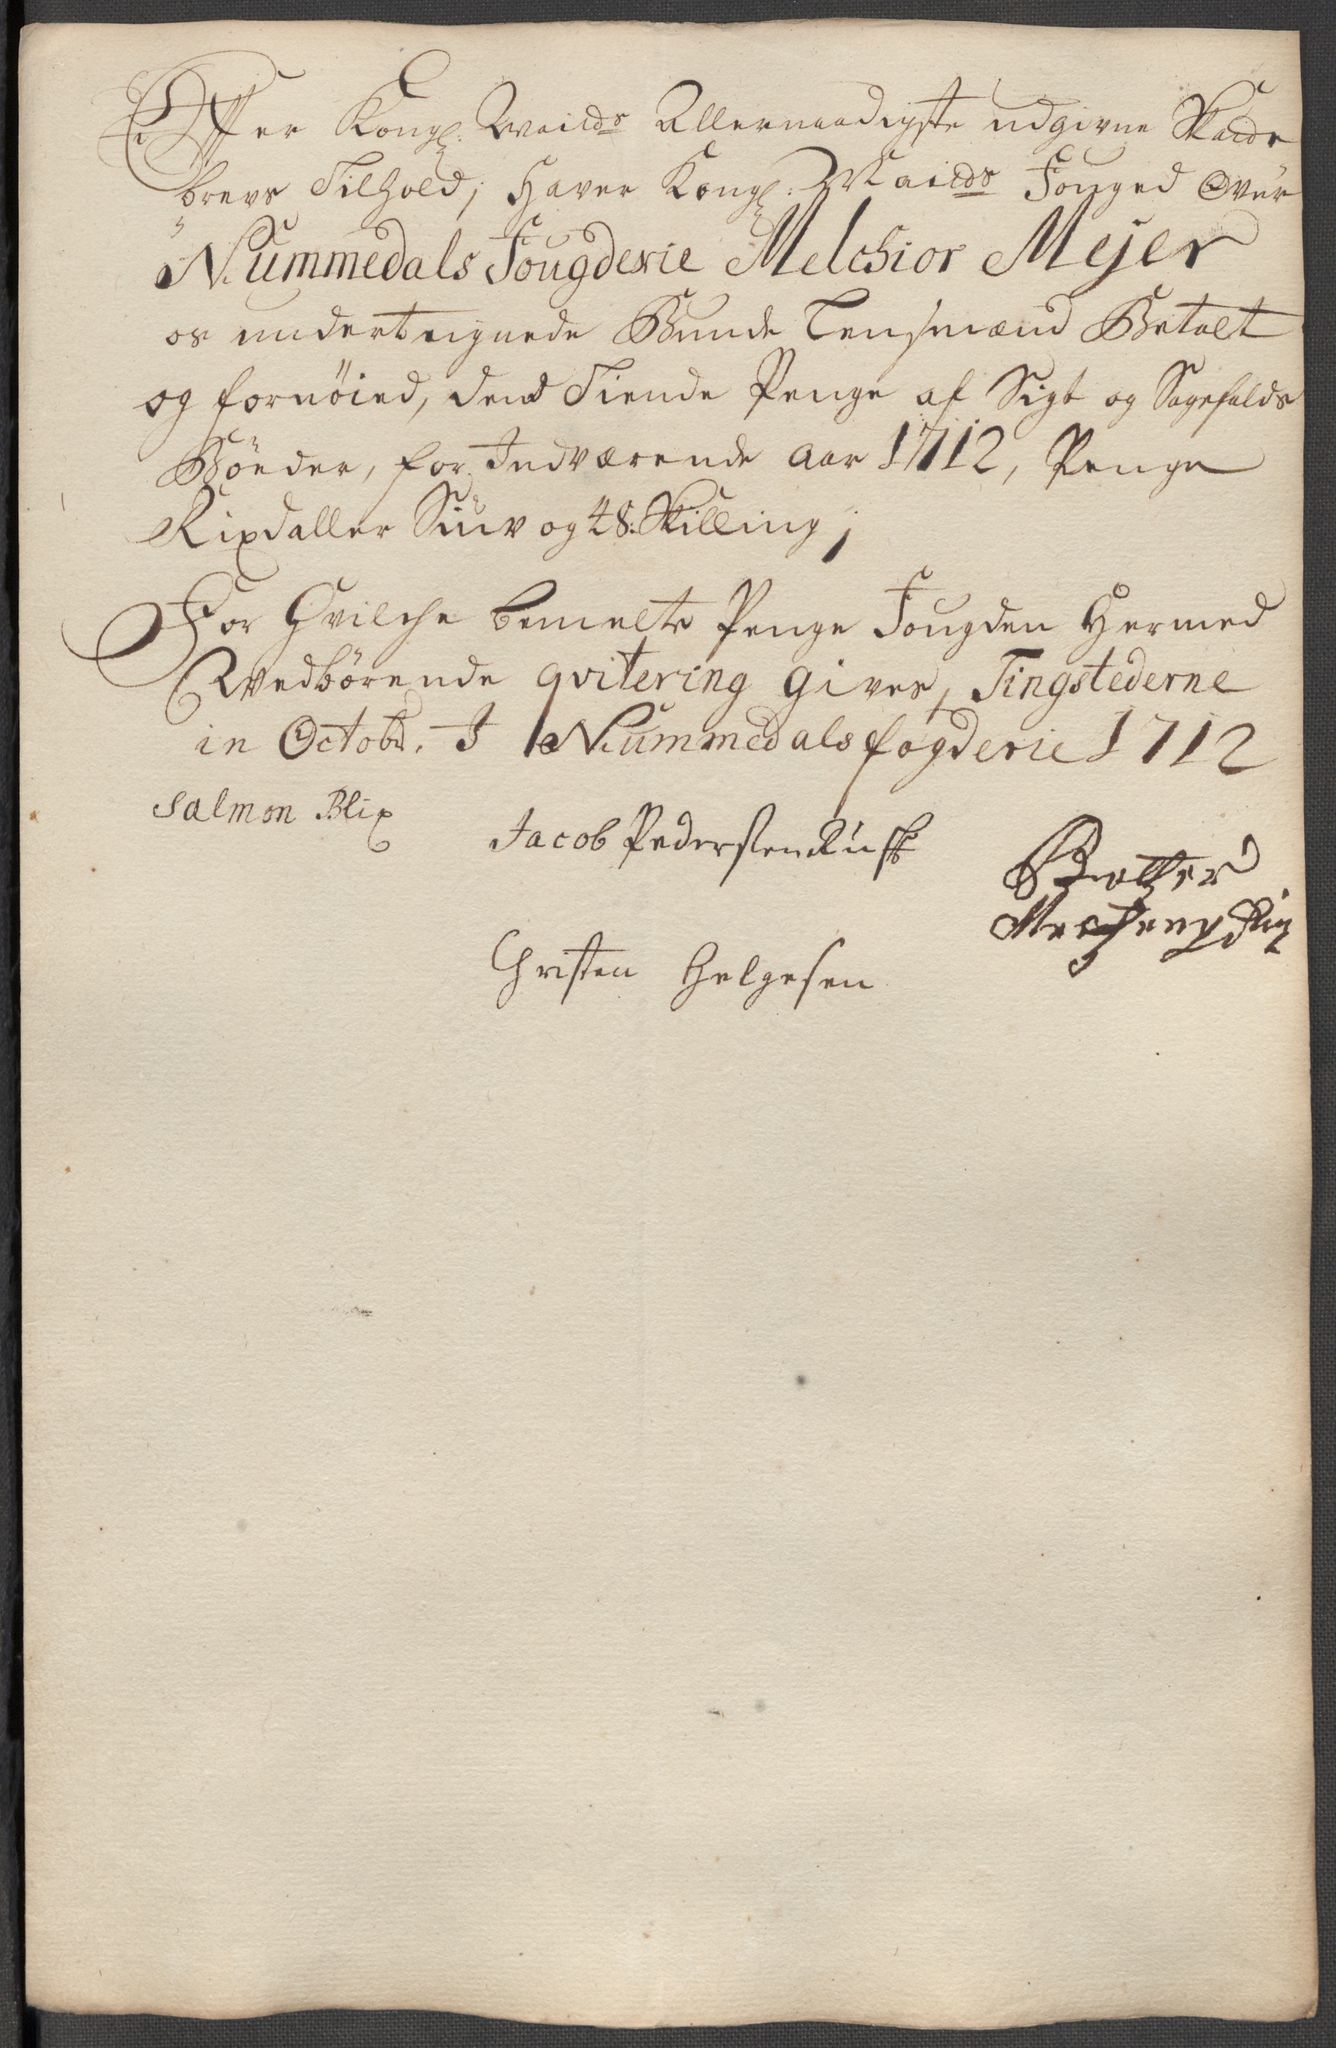 Effter Kongl: Maÿtds Allernaadigste udgivne Skade
brevs Tilhold, Haver Kongl: Maitds Fouged Over
Nummedals Fougderie Melchior Mejer
os underteignede Bunde Lensmænd Betalt
og fornöied, dend Tiende Penge af Sigt og Sagefalds
Bönder, for Indværende Aar 1712, Penge
Rixdaller Siuv og 48. Skilling;
For Hvilche bemelte Penge Fougden Hermed
Vedbörende qvitering gives, Tingstederne
in Octobr. I Nummedals fogderie 1712
Salmon Blix
Jacob Pedersen
Christen Helgesen